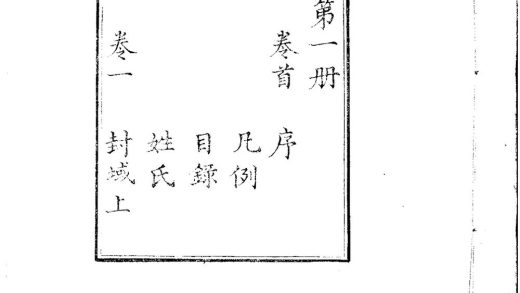 第一册
卷首 序
凡例
目録
姓氏
卷一 封域上